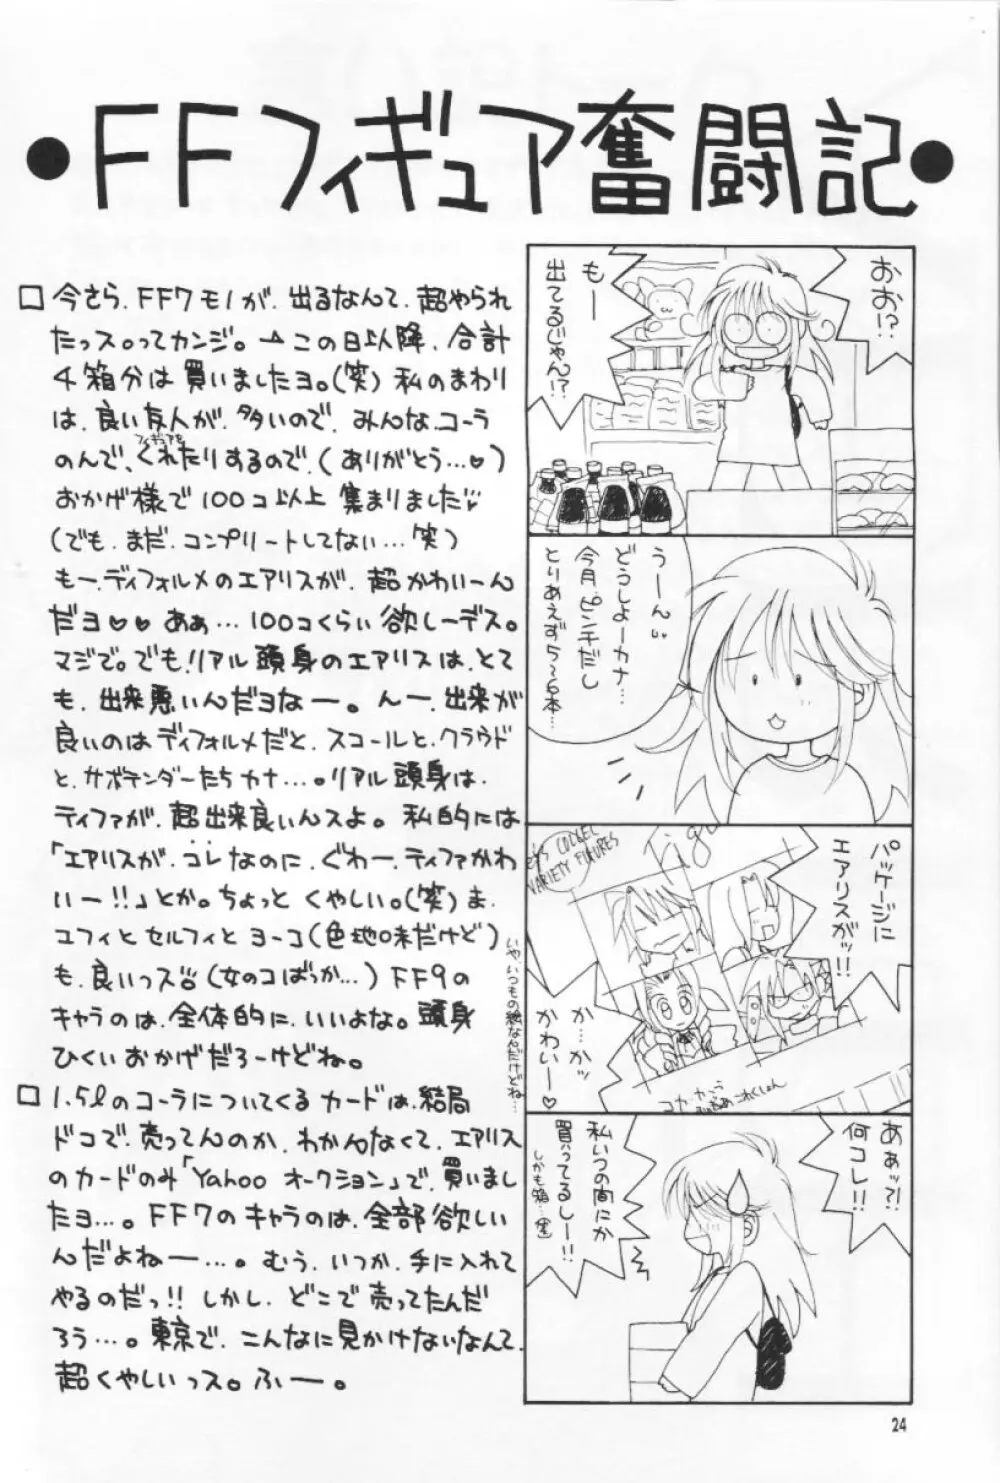 ●FFフィギュア奮闘記●
□ 今さら、FF7モノが、出るなんて、超やられ
たっス。ってカンジ。→この日以降、合計
4箱分は買いましたヨ。(笑) 私のまわり
は、良い友人が、多いので、みんな、コーラ
のんで、くれたりするので、(ありがとう…♥)
フィギュアを
おかげ様で100コ以上 集まりました
(でも、まだ、コンプリートしてない…笑)
もー、ディフォルメのエアリスが、超かわいーん
だヨ♥♥ あぁ…100コくらい欲しーデス。
マジで。でも!リアル頭身のエアリスは、とて
も、出来悪いんだヨなー。んー、出来が
良いのはディフォルメだと、スコールと、クラウド
と、サボテンダーたちカナ…。リアル頭身は、
ティファが、超出来良いんスよ。私的には
「エアリスが、コレなのに、ぐわー、ティファかわ
いー!!」とか。ちょっとくやしい。(笑) ま、
ユフィとセルフィとヨーコ(色地味だけど)
も、良いっス(女のコばっか…) FF9の
キャラのは、全体的に、いいよな。頭身
ひくいおかげだろーけどね。
いや、いつもの絵なんだけどね…
□ 1.5ℓのコーラについてくるカードは、結局
ドコで、売ってんのか、わかんなくて、エアリス
のカードのみ「Yahoo オークション」で、買いまし
たヨ…。FF7のキャラのは、全部欲しい
んだよねー…。むう、いつか、手に入れて
やるのだっ!! しかし、どこで売ってたんだ
ろう…。東京で、こんなに見かけないなんて、
超くやしいっス。ふー。
おお!?
もー
出てるじゃん!?
うーん
どうしよーカナ…
今月、ピンチだし
とりあえず5〜6本…
パッケージに
エアリスがッ!!
COLGEL
VARIETY FIGURES
か…かッ
かわいー♥
コカ・コーラ
あぁッ?!
何コレ!!
私いつの間にか
買ってるしー!!
しかも箱…(笑)
24